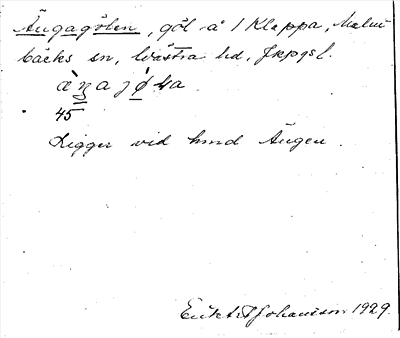 Ängagölen, göl å 1 Kleppa, Malm
bäcks sn, Västra hd, Jkpgs l.
45
Ligger vid hmd Ängen.
Erikt Johansson 1929.